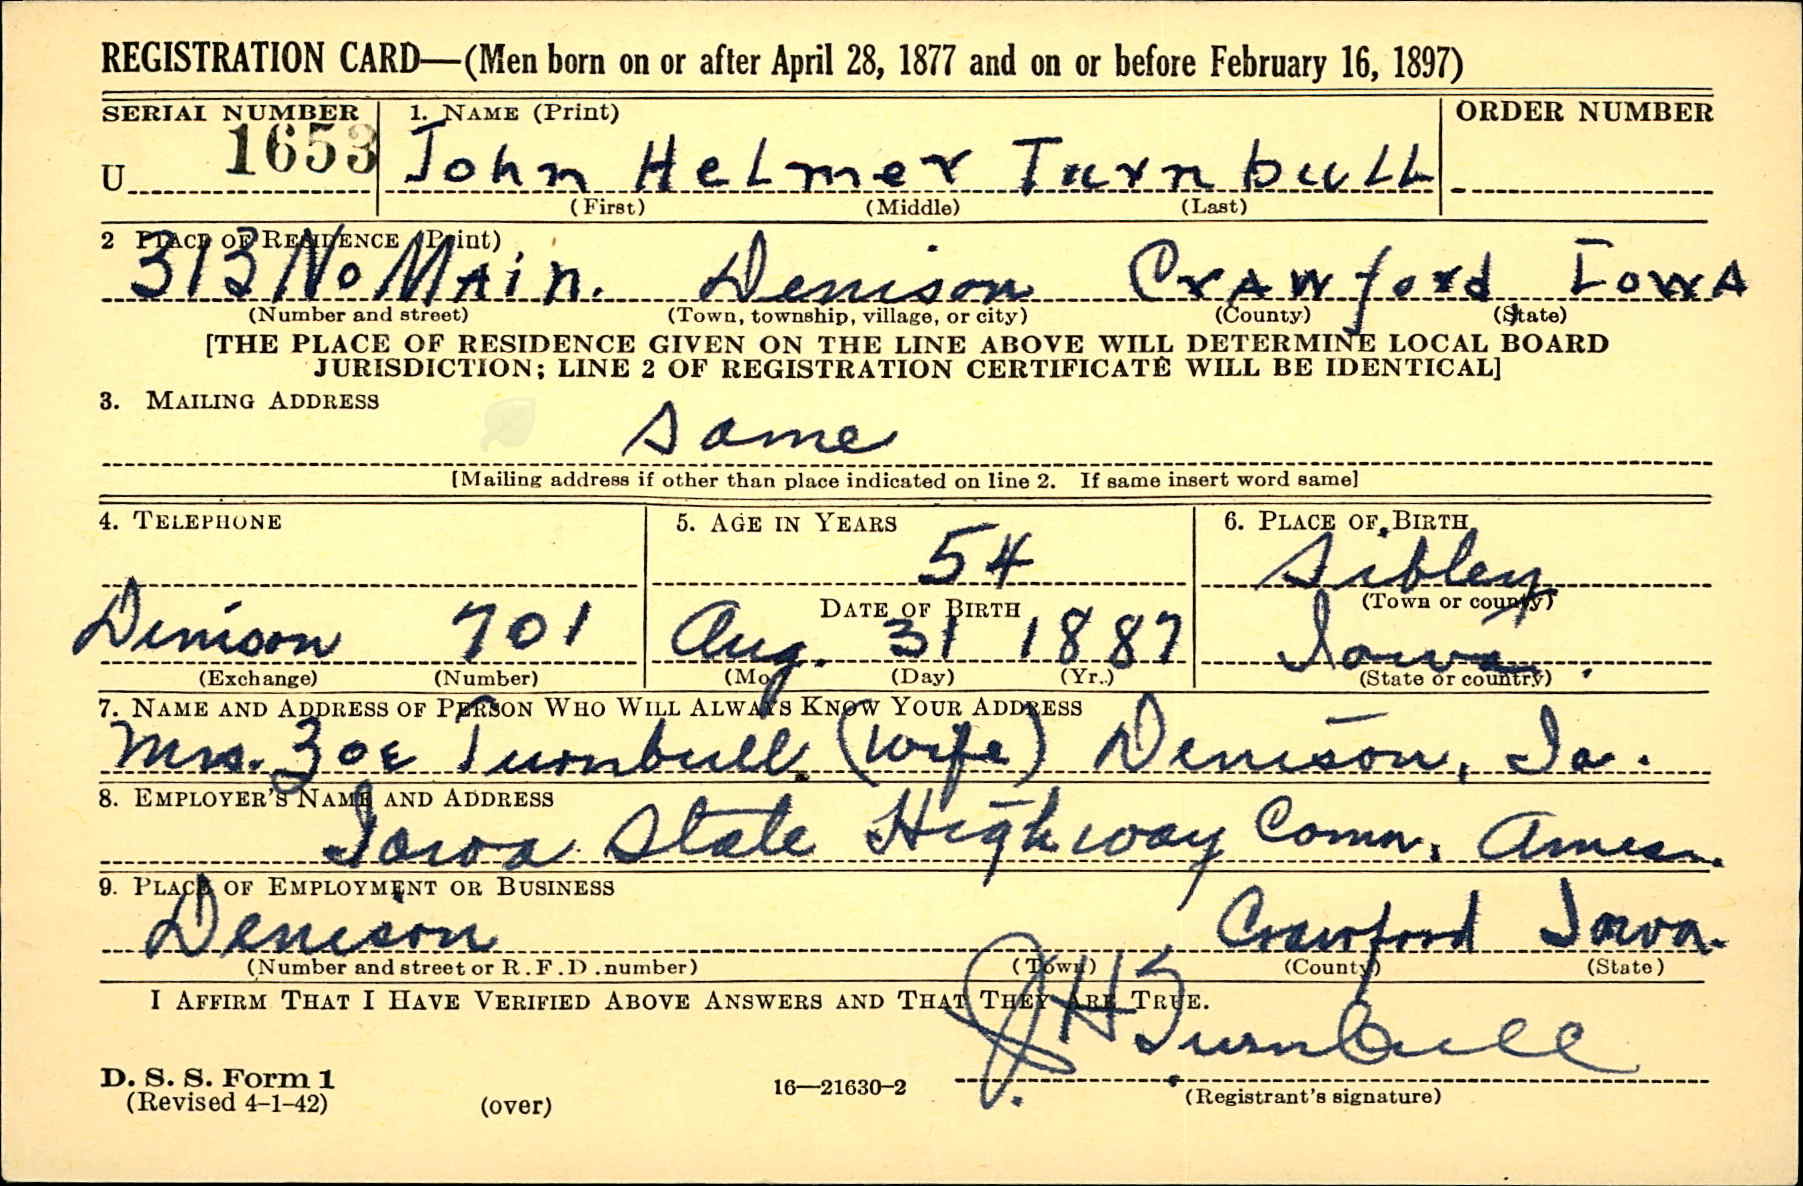 REGISTRATION CARD—(Men born on or after April 28, 1877 and on or before February 16, 1897)
SERIAL NUMBER 1. NAME (Print) ORDER NUMBER
U 1653 John Helmer Turnbull
(First) (Middle) (Last)
2 PLACE OF RESIDENCE (Print)
313 No Main. Denison Crawford, Iowa
(Number and street) (Town, township, village, or city) (County) (State)
[THE PLACE OF RESIDENCE GIVEN ON THE LINE ABOVE WILL DETERMINE LOCAL BOARD
JURISDICTION; LINE 2 OF REGISTRATION CERTIFICATE WILL BE IDENTICAL]
3. MAILING ADDRESS
Same
[Mailing address if other than place indicated on line 2. If same insert word same]
4. TELEPHONE 5. AGE IN YEARS 6. PLACE OF BIRTH
54 Sibley
DATE OF BIRTH (Town or county)
Denison 701 Aug. 31 1887 Iowa.
(Exchange) (Number) (Mo.) (Day) (Yr.) (State or country)
7. NAME AND ADDRESS OF PERSON WHO WILL ALWAYS KNOW YOUR ADDRESS
Mrs. Zoe Turnbull (wife) Denison, Ia.
8. EMPLOYER'S NAME AND ADDRESS
Iowa State Highway Comm, Ames
9. PLACE OF EMPLOYMENT OR BUSINESS
Denison Crawford Iowa.
(Number and street or R.F.D. number) (Town) (County) (State)
I AFFIRM THAT I HAVE VERIFIED ABOVE ANSWERS AND THAT THEY ARE TRUE.
J H Turnbull
D. S. S. Form 1
(Revised 4-1-42) (over) 16—21630-2 (Registrant's signature)